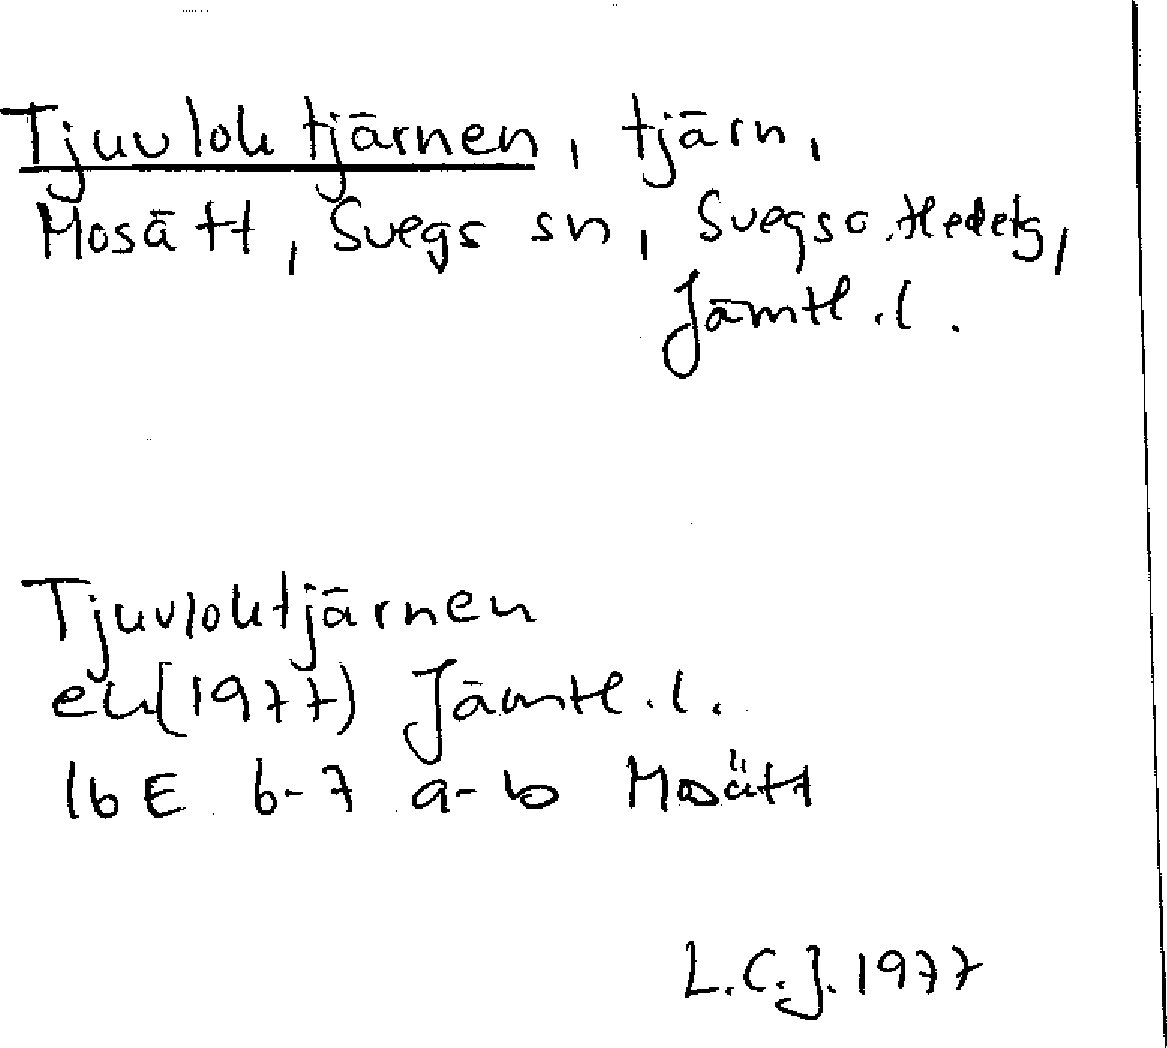 Tjuvloktjärnen, tjärn,
Mosätt, Svegs sn, Svegs o. Hedetg,
Jämtl. l.
Tjuvloktjärnen
ek(1977) Jämtl. l.
16 E 6-7 a-b Mosätt
L.C.J. 1977